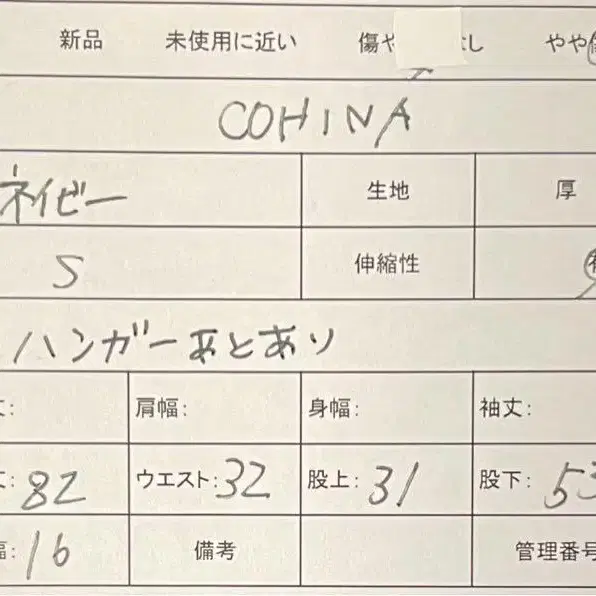 新品 未使用に近い 傷や し やや
COHINA
ネイビー 生地 厚
S 伸縮性
ハンガーあとあり
丈: 肩幅: 身幅: 袖丈:
丈: 82 ウエスト: 32 股上: 31 股下: 53
幅: 16 備考 管理番号